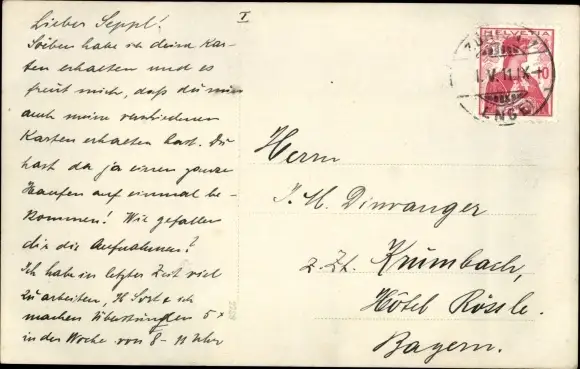 I
Lieber Seppl!
Soeben habe ich deine Kar-
ten erhalten und es
freut mich, daß du nun
auch meine verschiedenen
Karten erhalten hast. Du
hast da ja einen ganzen
Haufen auf einmal be-
kommen! Wie gefallen
dir die Aufnahmen?
Ich habe in letzter Zeit viel
zu arbeiten, H. & ich
machen Überstunden 5 x
in der Woche von 8 - Uhr
HELVETIA
10
1.V.11.IX
ENGE
Herrn
J. M. Dinranger
z. Zt. Krumbach,
Hôtel Rössle.
Bayern.